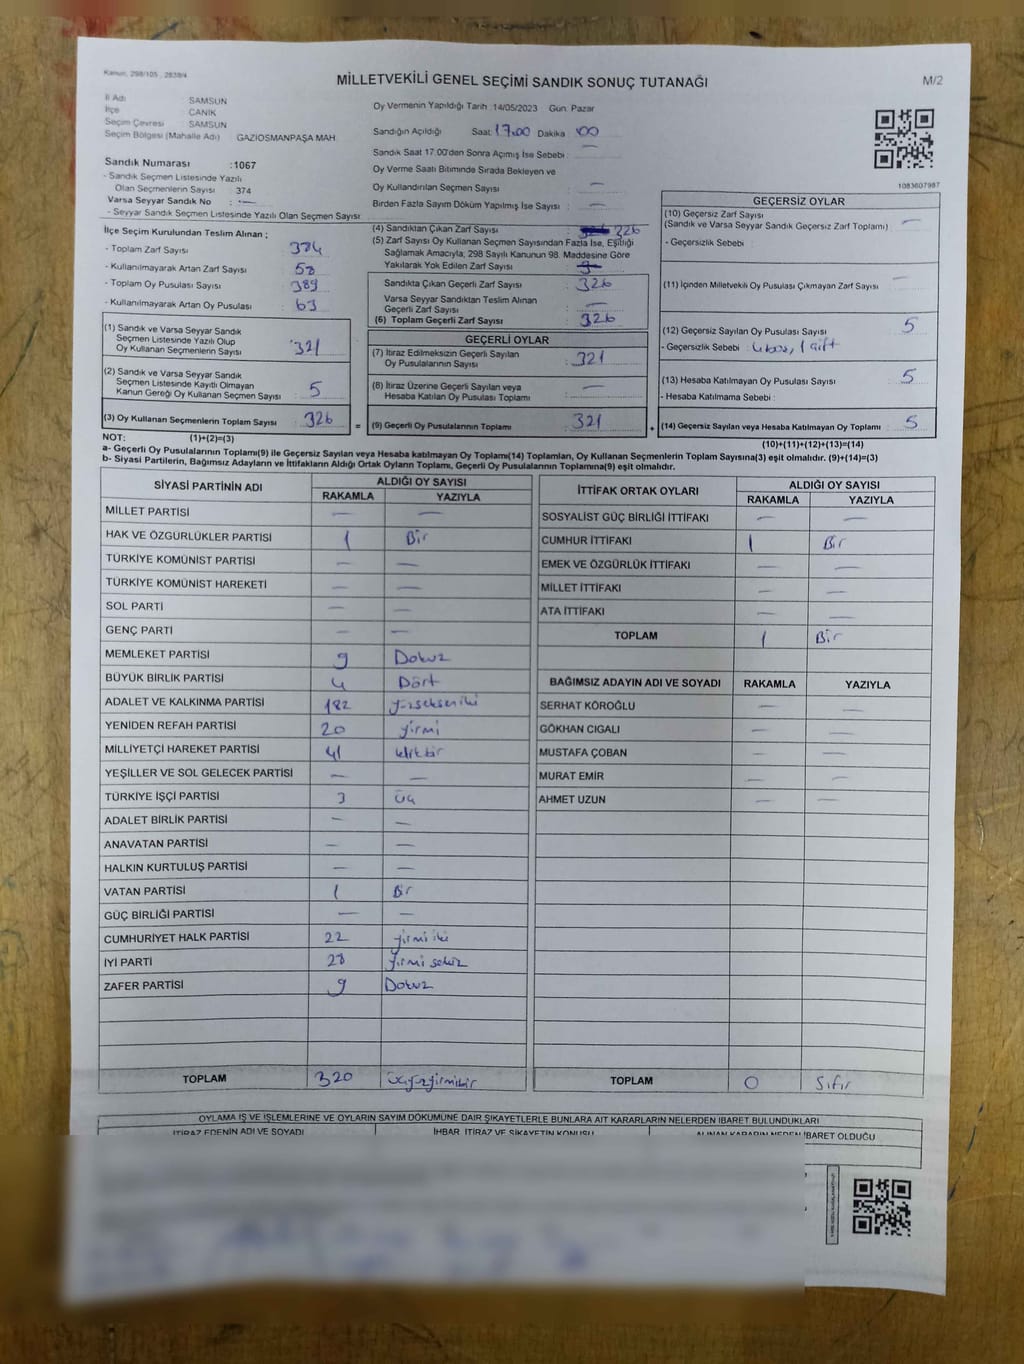 Kanun, 298/105, 2839/4
MİLLETVEKİLİ GENEL SEÇİMİ SANDIK SONUÇ TUTANAĞI
M/2
İl Adı : SAMSUN
İlçe : CANİK
Seçim Çevresi : SAMSUN
Seçim Bölgesi (Mahalle Adı) GAZİOSMANPAŞA MAH.
Sandık Numarası :1067
- Sandık Seçmen Listesinde Yazılı
Olan Seçmenlerin Sayısı : 374
Varsa Seyyar Sandık No : —
- Seyyar Sandık Seçmen Listesinde Yazılı Olan Seçmen Sayısı
Oy Vermenin Yapıldığı Tarih 14/05/2023 Gün: Pazar
Sandığın Açıldığı Saat: 17.00 Dakika : 00
Sandık Saat 17:00'den Sonra Açılmış İse Sebebi : —
Oy Verme Saati Bitiminde Sırada Bekleyen ve
Oy Kullandırılan Seçmen Sayısı : —
Birden Fazla Sayım Döküm Yapılmış İse Sayısı : —
1083607987
İlçe Seçim Kurulundan Teslim Alınan ;
- Toplam Zarf Sayısı :
- Kullanılmayarak Artan Zarf Sayısı :
- Toplam Oy Pusulası Sayısı : 389
- Kullanılmayarak Artan Oy Pusulası : 63
(1) Sandık ve Varsa Seyyar Sandık
Seçmen Listesinde Yazılı Olup
Oy Kullanan Seçmenlerin Sayısı : 321
(2) Sandık ve Varsa Seyyar Sandık
Seçmen Listesinde Kayıtlı Olmayan
Kanun Gereği Oy Kullanan Seçmen Sayısı : 5
(3) Oy Kullanan Seçmenlerin Toplam Sayısı : 326
(4) Sandıktan Çıkan Zarf Sayısı : 326
(5) Zarf Sayısı Oy Kullanan Seçmen Sayısından Fazla İse, Eşitliği
Sağlamak Amacıyla, 298 Sayılı Kanunun 98. Maddesine Göre
Yakılarak Yok Edilen Zarf Sayısı :
Sandıkta Çıkan Geçerli Zarf Sayısı : 326
Varsa Seyyar Sandıktan Teslim Alınan
Geçerli Zarf Sayısı : —
(6) Toplam Geçerli Zarf Sayısı : 326
GEÇERLİ OYLAR
(7) İtiraz Edilmeksizin Geçerli Sayılan
Oy Pusulalarının Sayısı : 321
(8) İtiraz Üzerine Geçerli Sayılan veya
Hesaba Katılan Oy Pusulası Toplamı : —
= (9) Geçerli Oy Pusulalarının Toplamı : 321 +
GEÇERSİZ OYLAR
(10) Geçersiz Zarf Sayısı
(Sandık ve Varsa Seyyar Sandık Geçersiz Zarf Toplamı) : —
- Geçersizlik Sebebi :
(11) İçinden Milletvekili Oy Pusulası Çıkmayan Zarf Sayısı : —
(12) Geçersiz Sayılan Oy Pusulası Sayısı : 5
- Geçersizlik Sebebi : 4 boş, 1 çift
(13) Hesaba Katılmayan Oy Pusulası Sayısı : 5
- Hesaba Katılmama Sebebi :
(14) Geçersiz Sayılan veya Hesaba Katılmayan Oy Toplamı : 5
NOT: (1)+(2)=(3)
(10)+(11)+(12)+(13)=(14)
a- Geçerli Oy Pusulalarının Toplamı(9) ile Geçersiz Sayılan veya Hesaba katılmayan Oy Toplamı(14) Toplamları, Oy Kullanan Seçmenlerin Toplam Sayısına(3) eşit olmalıdır. (9)+(14)=(3)
b- Siyasi Partilerin, Bağımsız Adayların ve İttifakların Aldığı Ortak Oyların Toplamı, Geçerli Oy Pusulalarının Toplamına(9) eşit olmalıdır.
SİYASİ PARTİNİN ADI ALDIĞI OY SAYISI
RAKAMLA YAZIYLA
MİLLET PARTİSİ — —
HAK VE ÖZGÜRLÜKLER PARTİSİ 1 Bir
TÜRKİYE KOMÜNİST PARTİSİ — —
TÜRKİYE KOMÜNİST HAREKETİ — —
SOL PARTİ — —
GENÇ PARTİ — —
MEMLEKET PARTİSİ 9 Dokuz
BÜYÜK BİRLİK PARTİSİ 4 Dört
ADALET VE KALKINMA PARTİSİ 182 yüzsekseniki
YENİDEN REFAH PARTİSİ 20 yirmi
MİLLİYETÇİ HAREKET PARTİSİ 41 kırkbir
YEŞİLLER VE SOL GELECEK PARTİSİ — —
TÜRKİYE İŞÇİ PARTİSİ 3 üç
ADALET BİRLİK PARTİSİ — —
ANAVATAN PARTİSİ — —
HALKIN KURTULUŞ PARTİSİ — —
VATAN PARTİSİ 1 Bir
GÜÇ BİRLİĞİ PARTİSİ — —
CUMHURİYET HALK PARTİSİ 22 yirmi iki
İYİ PARTİ 28 yirmi sekiz
ZAFER PARTİSİ 9 Dokuz
TOPLAM 320 üçyüzyirmibir
İTTİFAK ORTAK OYLARI ALDIĞI OY SAYISI
RAKAMLA YAZIYLA
SOSYALİST GÜÇ BİRLİĞİ İTTİFAKI — —
CUMHUR İTTİFAKI 1 Bir
EMEK VE ÖZGÜRLÜK İTTİFAKI — —
MİLLET İTTİFAKI — —
ATA İTTİFAKI — —
TOPLAM 1 Bir
BAĞIMSIZ ADAYIN ADI VE SOYADI RAKAMLA YAZIYLA
SERHAT KÖROĞLU — —
GÖKHAN CIGALI — —
MUSTAFA ÇOBAN — —
MURAT EMİR — —
AHMET UZUN — —
TOPLAM 0 Sıfır
OYLAMA İŞ VE İŞLEMLERİNE VE OYLARIN SAYIM DÖKÜMÜNE DAİR ŞİKAYETLERLE BUNLARA AİT KARARLARIN NELERDEN İBARET BULUNDUKLARI
İTİRAZ EDENİN ADI VE SOYADI İHBAR, İTİRAZ VE ŞİKAYETİN KONUSU ALINAN KARARIN NEDEN İBARET OLDUĞU